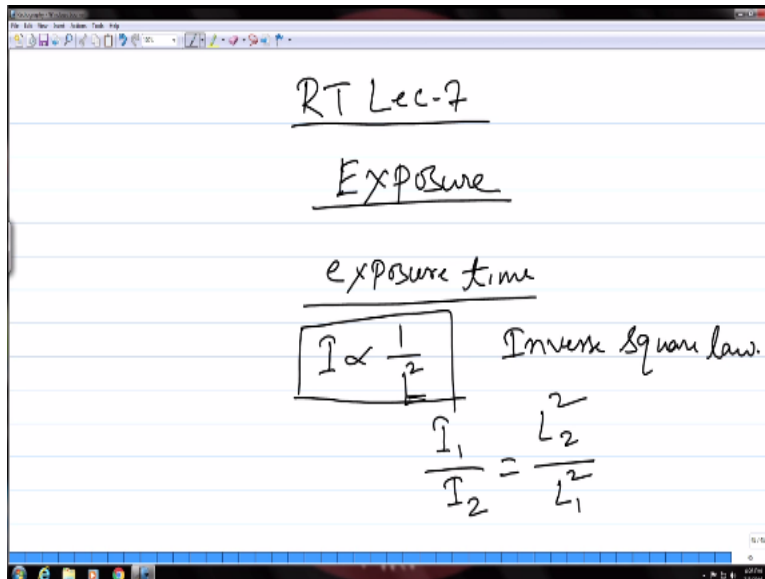 File Edit View Insert Actions Tools Help
RT Lec-7
Exposure
exposure time
I ∝ 1/L² Inverse square law.
I₁/I₂ = L₂²/L₁²